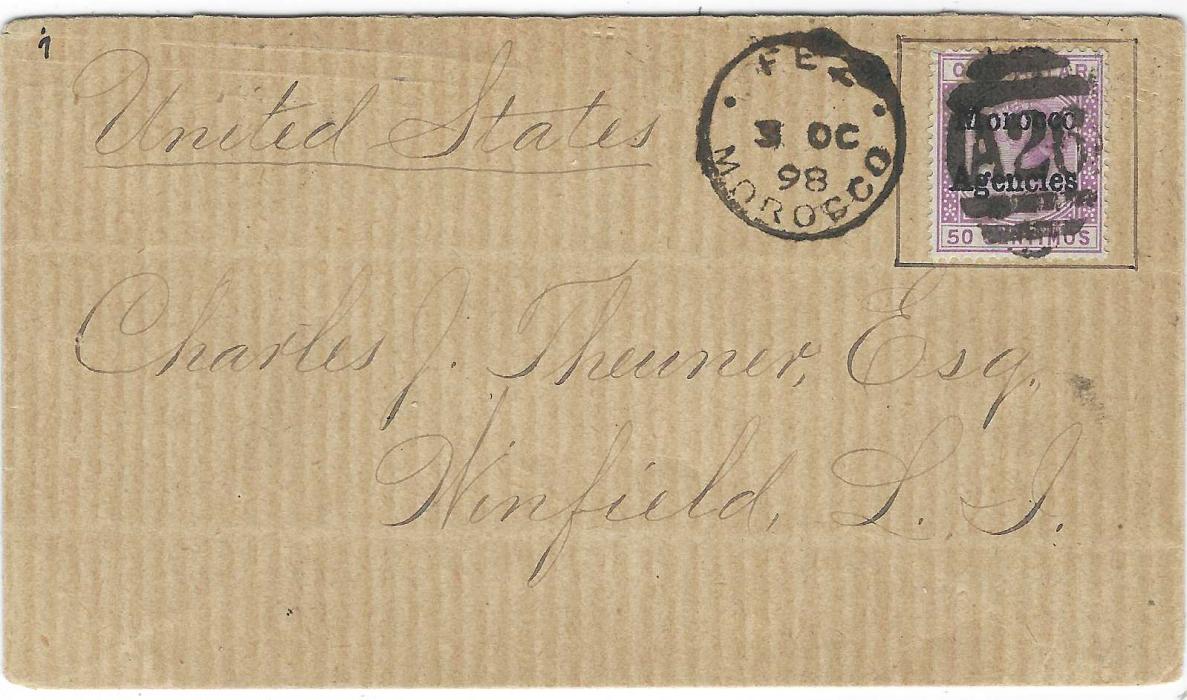 1
United States
FEZ
3 OC
98
MOROCCO
Morocco
A26
Agencies
50 CENTIMOS
Charles J. Theuner, Esq.
Winfield, L. I.